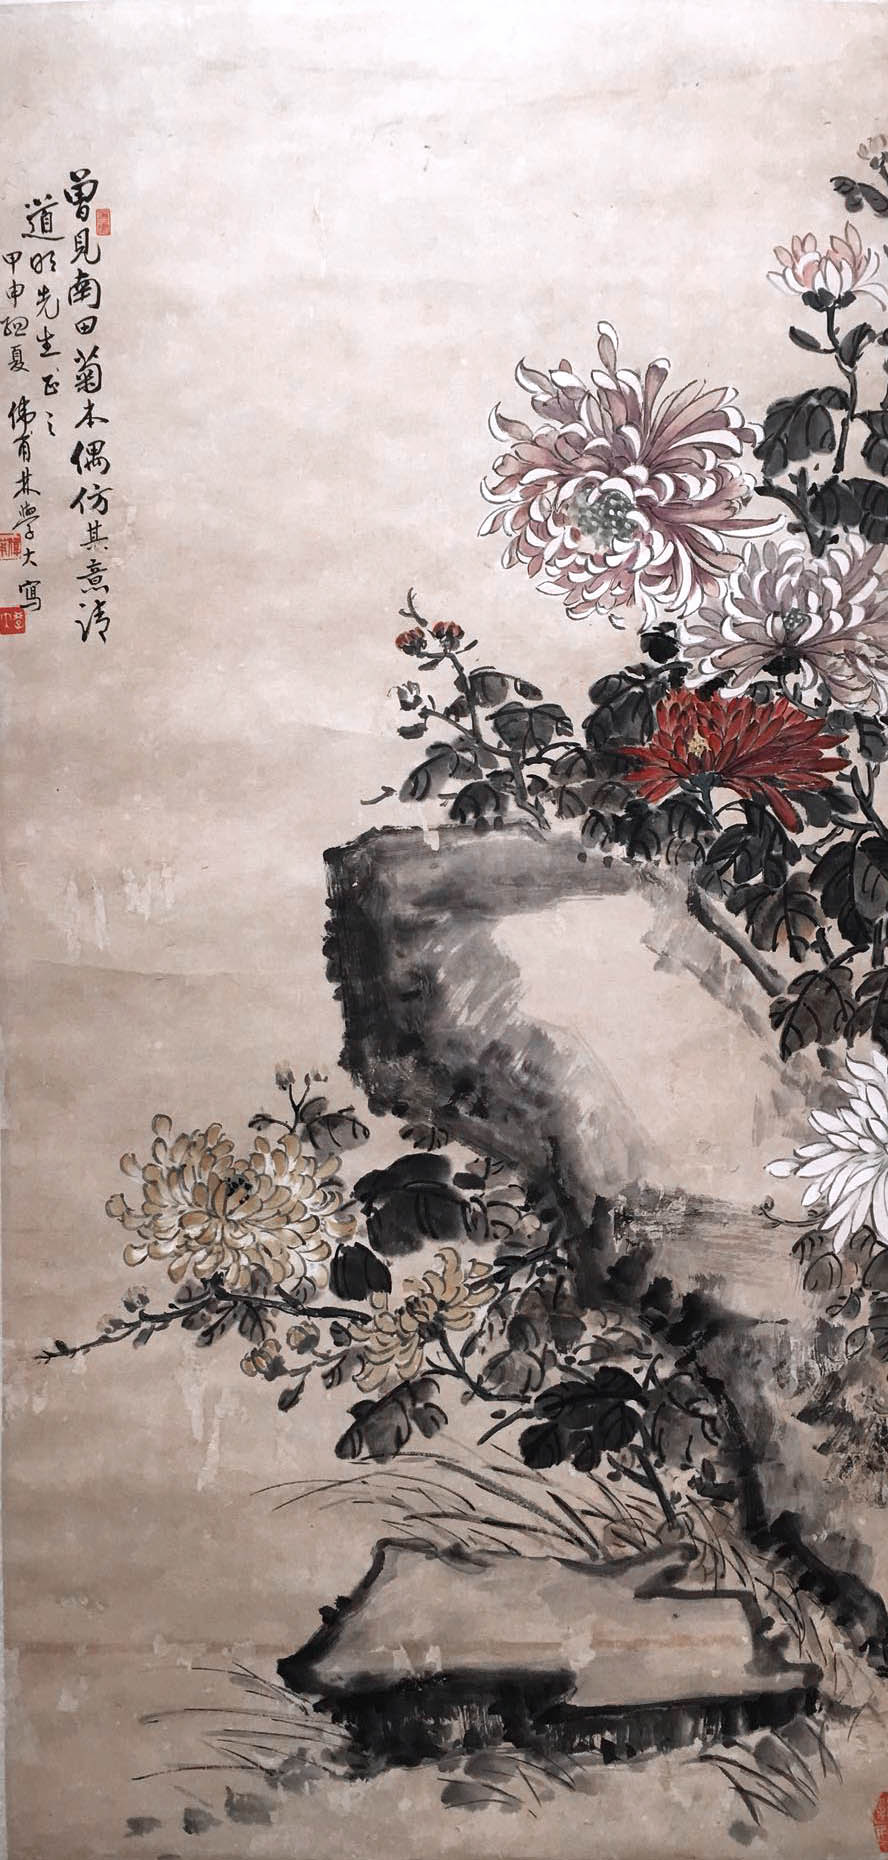 曾見南田菊本偶仿其意請
道明先生正之
甲申孟夏 偉甫林學大寫